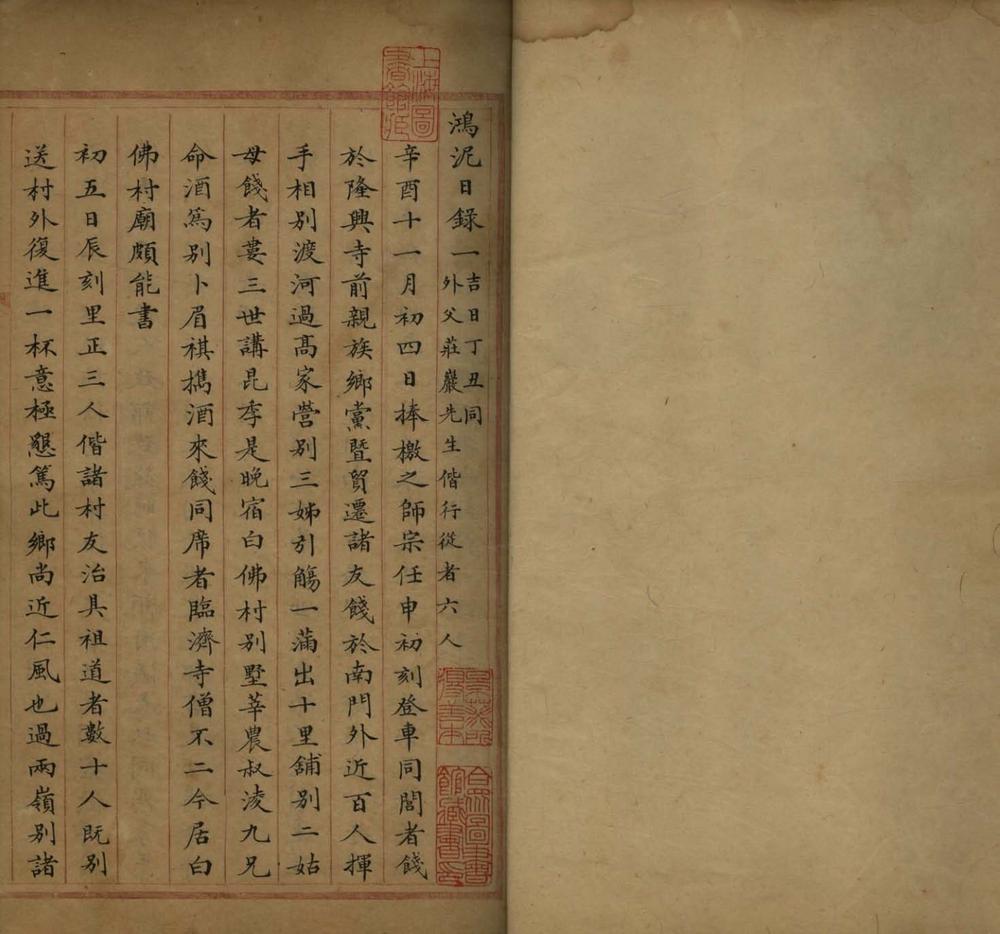 鴻泥日錄一
吉日丁丑同
外父莊巖先生偕行從者六人
辛酉十一月初四日捧檄之師宗任申初刻登車同閭者餞
於隆興寺前親族鄉黨暨貿遷諸友餞於南門外近百人揮
手相別渡河過高家營別三姊引觴一滿出十里舖別二姑
母餞者婁三世講昆季是晚宿白佛村別墅莘農叔淩九兄
命酒爲別卜眉祺擕酒來餞同席者臨濟寺僧不二今居白
佛村廟頗能書
初五日辰刻里正三人偕諸村友治具祖道者數十人既別
送村外復進一杯意極懇篤此鄉尚近仁風也過兩嶺別諸
上海圖書館藏
合眾圖書館藏書印